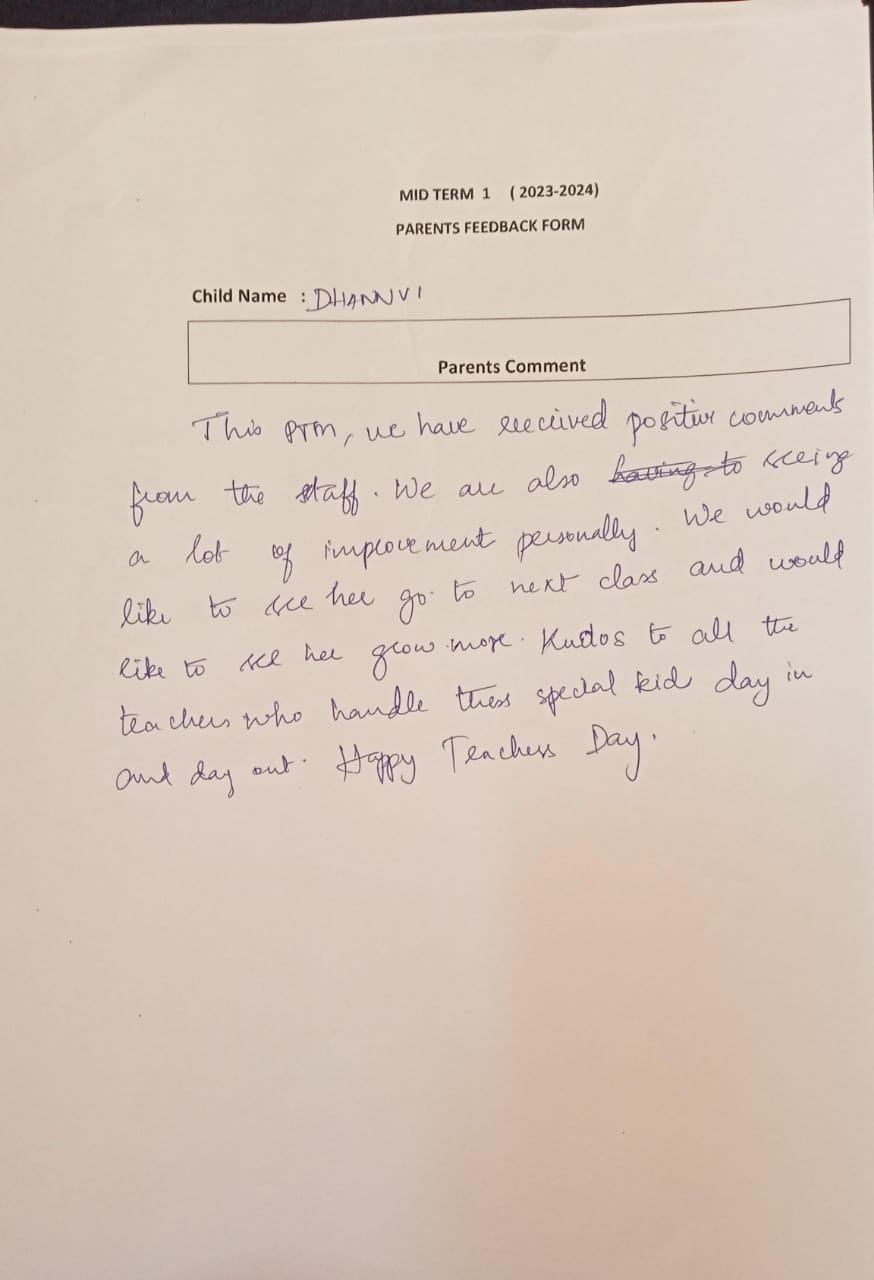 MID TERM 1 ( 2023-2024)
PARENTS FEEDBACK FORM
Child Name : DHANNVI
Parents Comment
This PTM, we have received positive comments
from the staff. We are also having to seeing
a lot of improvement personally. We would
like to see her go to next class and would
like to see her grow more. Kudos to all the
teachers who handle thess special kid day in
and day out. Happy Teachers Day.